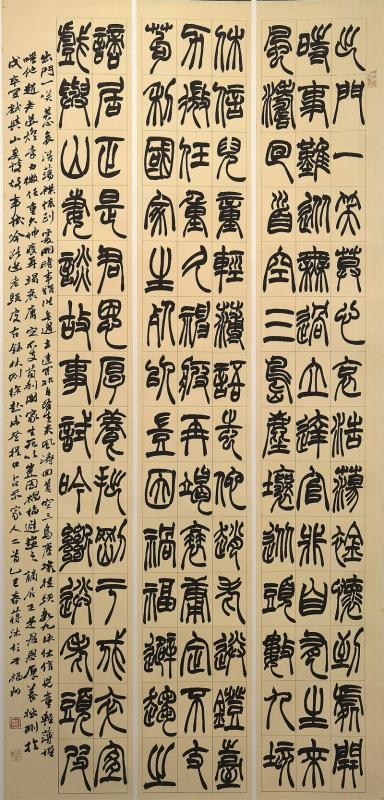 出門一笑莫心哀浩蕩襟懷到處開
時事難從無過立達官非自有生來
風濤回首空三島塵壤從頭數九垓
休信兒童輕薄語嗤他趙老送鐙臺
力微任重久神疲再竭衰庸定不支
苟利國家生死以豈因禍福避趨之
謫居正是君恩厚養拙剛于戍卒宜
戲與山妻談故事試吟斷送老頭皮
出門一笑莫心哀浩蕩襟懷到處開時事難從無過立達官非自有生來風濤回首空三島塵壤從頭數九垓休信兒童輕薄語
嗤他趙老送燈臺力微任重久神疲再竭衰庸定不支苟利國家生死以豈因禍福避趨之謫居正是君恩厚養拙剛於
戍卒宜戲與山妻談故事試吟斷送老頭皮右錄林則徐赴戍登程口占示家人二首乙巳春蔣沐于福州